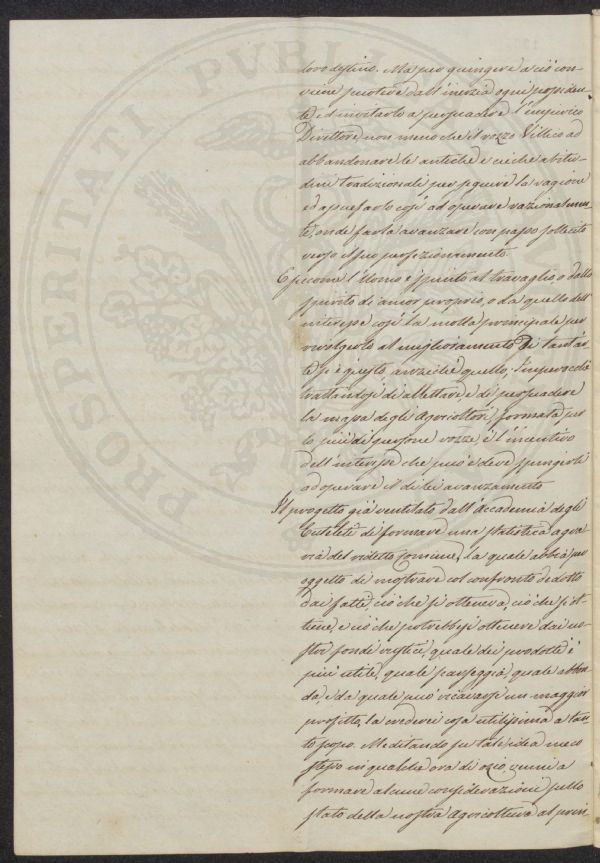 loro destino. Ma per giungere a ciò con-
viene scuotere dall'inerzia ogni possiden-
te, ed invitarlo a persuadere l'empirico
Direttore non meno che il rozzo Villico ad
abbandonare le antiche e cieche abitu-
dini tradizionali per seguire la ragione
ed assuefarlo così ad operare razionalmen-
te, onde farla avanzare con passo sollecito
verso il suo perfezionamento.
E siccome l'Uomo è spinto al travaglio, o dallo
spirito di amor proprio, o da quello dell'
interesse così la molla principale per
rivolgerlo al miglioramento Di tant'ar-
te si è questo anzichè quello; imperocchè
trattandosi di allettare e di persuadere
la massa degli Agricoltori formata per
lo più di persone rozze, è l'incentivo
dell'interesse che può e deve spingerli
ad operare il di lei avanzamento.
Il progetto già ventilato dall'Accademia degli
Euteleti di formare una statistica agra-
ria del ridetto Comune, la quale abbia per
oggetto di mostrare col confronto dedotto
dai fatti, ciò che si otteneva, ciò che si ot-
tiene, e ciò che potrebbesi ottenere dai no-
stri fondi rustici, quale dei prodotti è
più utile, quale scarseggia, quale abbon-
da, e da quale può ricavarsi un maggior
profitto, la crederei cosa utilissima a tan-
to scopo. Meditando su tale idea meco
stesso in qualche ora di ozio, venni a
formare alcune considerazioni sullo
stato della nostra Agricoltura al prin-
PROSPERITATI PUBLICAE